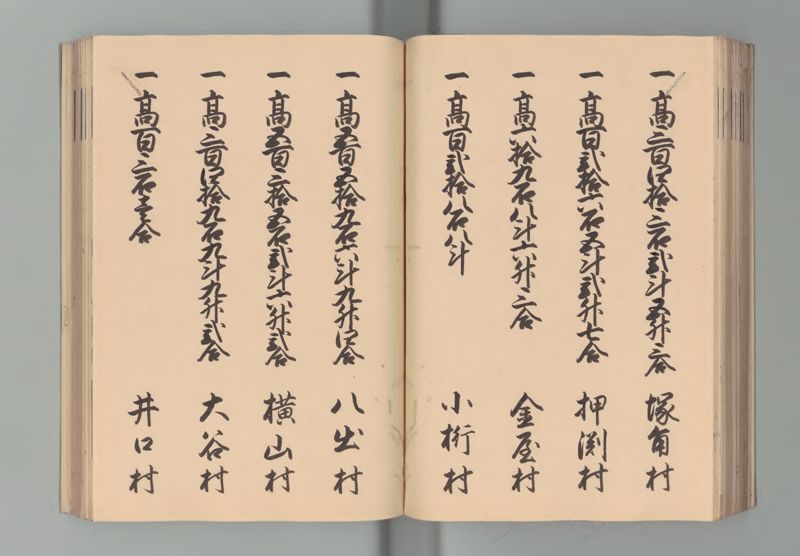 一 高三百四拾三石弐斗五升三合 塚角村
一 高百弐拾六石五斗弐升七合 押渕村
一 高六拾九石八斗六升三合 金屋村
一 高百弐拾八石八斗 小桁村
一 高五百五拾九石六斗九升四合 八出村
一 高五百三拾五石弐斗六升弐合 横山村
一 高三百四拾九石九斗九升弐合 大谷村
一 高百三石壱合 井口村